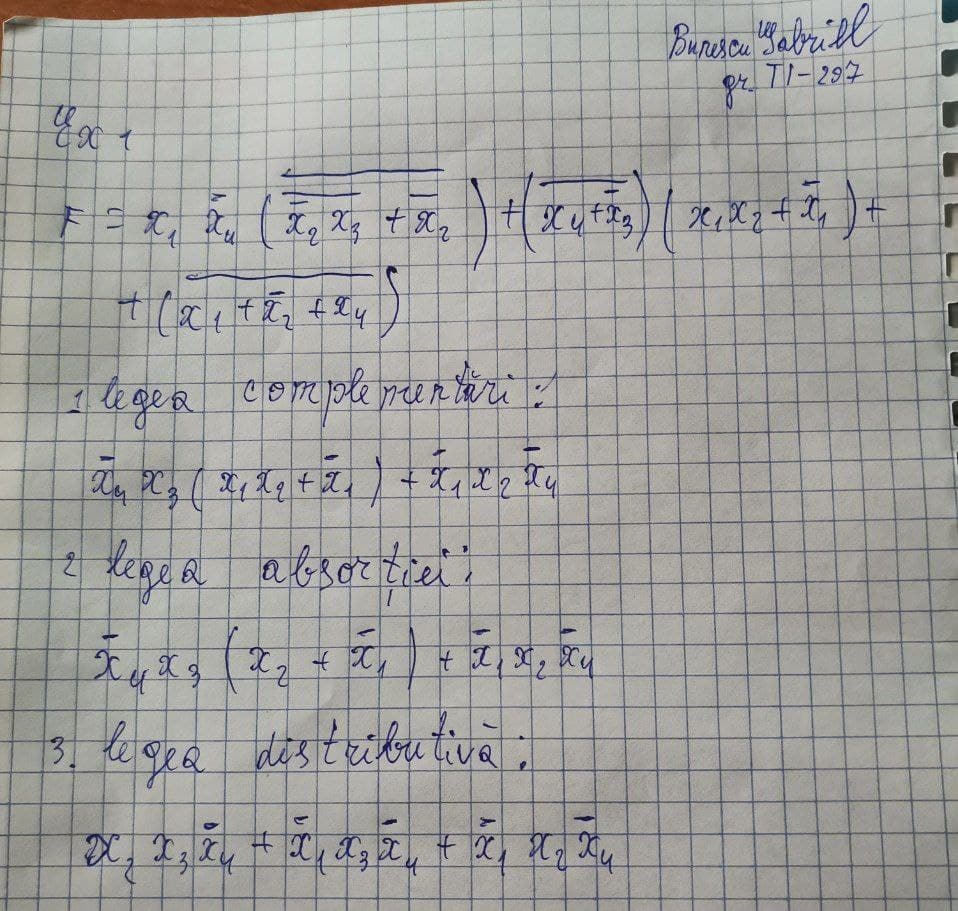 Bunescu Gabriel
gr. TI-207
Ex 1
F = x₁ x̄₄ (\overline{\overline{x̄₂ x₃} + \overline{x̄₂}}) + (\overline{x₄ + x̄₃}) (x₁x₂ + x̄₁) +
+ (\overline{x₁ + x̄₂ + x₄})
1 legea complementări:
x̄₄ x₃ (x₁x₂ + x̄₁) + x̄₁ x₂ x̄₄
2 legea absorției:
x̄₄ x₃ (x₂ + x̄₁) + x̄₁ x₂ x̄₄
3. legea distributivă:
x₂ x₃ x̄₄ + x̄₁ x₃ x̄₄ + x̄₁ x₂ x̄₄